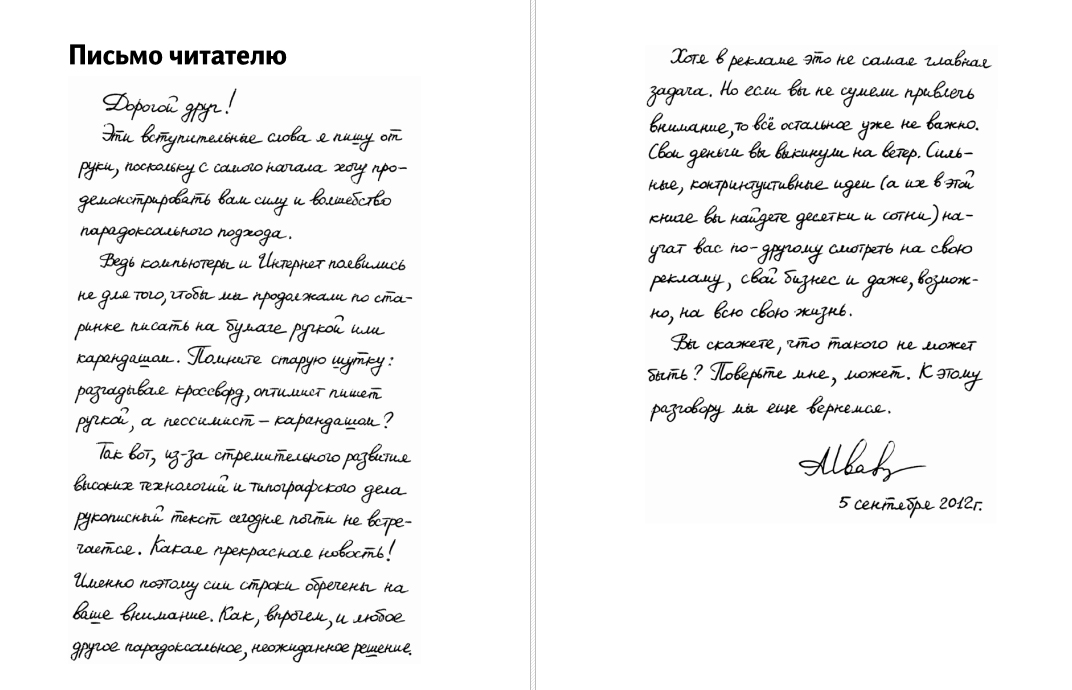 Письмо читателю
Дорогой друг!
Эти вступительные слова я пишу от
руки, поскольку с самого начала хочу про-
демонстрировать вам силу и волшебство
парадоксального подхода.
Ведь компьютеры и Интернет появились
не для того, чтобы мы продолжали по ста-
ринке писать на бумаге ручкой или
карандашом. Помните старую шутку:
разгадывая кроссворд, оптимист пишет
ручкой, а пессимист – карандашом?
Так вот, из-за стремительного развития
высоких технологий и типографского дела
рукописный текст сегодня почти не встре-
чается. Какая прекрасная новость!
Именно поэтому сии строки обречены на
ваше внимание. Как, впрочем, и любое
другое парадоксальное, неожиданное решение.
Хотя в рекламе это не самая главная
задача. Но если вы не сумели привлечь
внимание, то всё остальное уже не важно.
Свои деньги вы выкинули на ветер. Силь-
ные, контринтуитивные идеи (а их в этой
книге вы найдете десятки и сотни) на-
учат вас по-другому смотреть на свою
рекламу, свой бизнес и даже, возмож-
но, на всю свою жизнь.
Вы скажете, что такого не может
быть? Поверьте мне, может. К этому
разговору мы еще вернемся.
5 сентября 2012г.